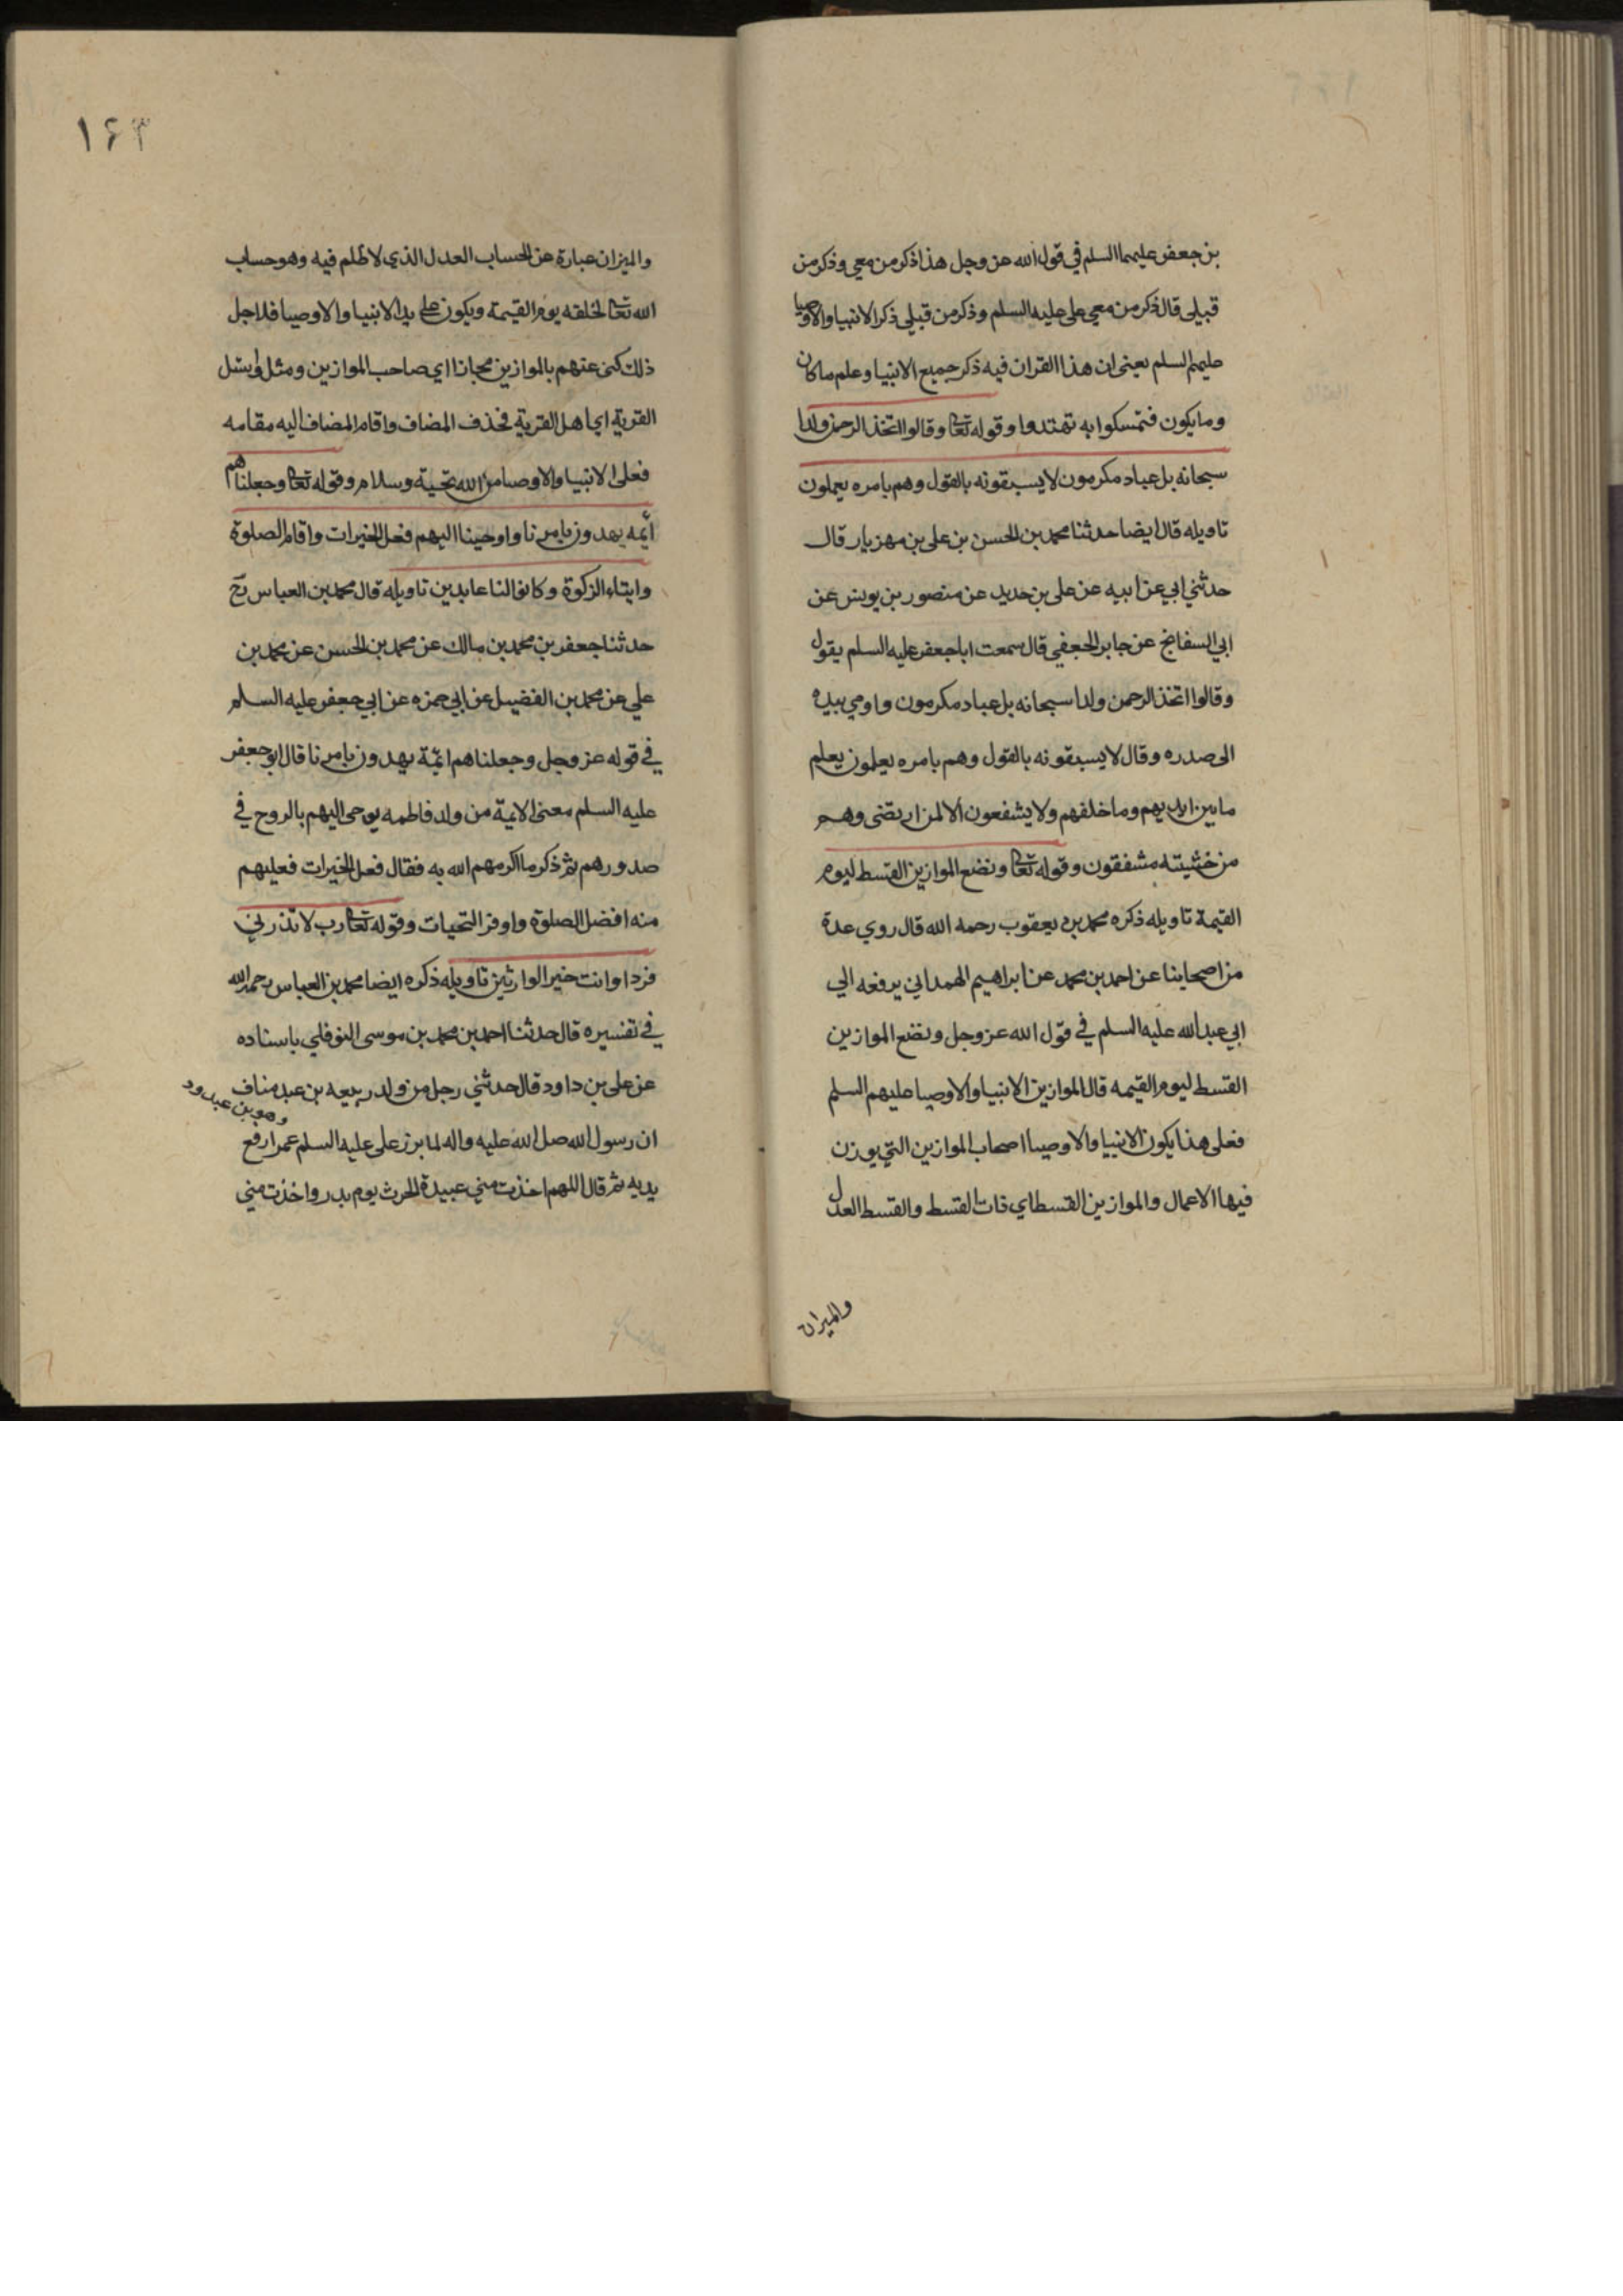 بن جعفر عليهما السلم في قول الله عز وجل هذا ذكر من معي وذكر من
قبلي قال ذكر من معي علي عليه السلم وذكر من قبلي ذكر الانبيا والاوصيا
عليهم السلم يعني ان هذا القران فيه ذكر جميع الانبيا وعلم ما كان
وما يكون فتمسكوا به تهتدوا وقوله تعا وقالوا اتخذ الرحمن ولدا
سبحانه بل عباد مكرمون لا يسبقونه بالقول وهم بامره يعملون
تاويله قال ايضا حدثنا محمد بن الحسن بن علي بن مهزيار قال
حدثني ابي عن ابيه عن علي بن حديد عن منصور بن يونس عن
ابي السفاتج عن جابر الجعفي قال سمعت ابا جعفر عليه السلم يقول
وقالوا اتخذ الرحمن ولدا سبحانه بل عباد مكرمون واومي بيده
الى صدره وقال لا يسبقونه بالقول وهم بامره يعملون يعلم
ما بين ايديهم وما خلفهم ولا يشفعون الا لمن ارتضى وهم
من خشيته مشفقون وقوله تعا ونضع الموازين القسط ليوم
القيمة تاويله ذكره محمد بن يعقوب رحمه الله قال روي عدة
من اصحابنا عن احمد بن محمد عن ابراهيم الهمداني يرفعه الي
ابي عبد الله عليه السلم في قول الله عز وجل ونضع الموازين
القسط ليوم القيمه قال الموازين الانبيا والاوصيا عليهم السلم
فعلى هذا يكون الانبيا والاوصيا اصحاب الموازين التي يوزن
فيها الاعمال والموازين القسط اي ذات القسط والقسط العدل
والميزان
١۶٣
والميزان عبارة عن الحساب العدل الذي لا ظلم فيه وهو حساب
الله تعا لخلقه يوم القيمة ويكون علي يد الانبيا والاوصيا فلاجل
ذلك كنى عنهم بالموازين مجازا اي صاحب الموازين ومثل وسئل
القرية اي اهل القرية فحذف المضاف واقام المضاف اليه مقامه
فعلى الانبيا والاوصيا من الله تحية وسلام وقوله تعا وجعلناهم
أئمه يهدون بامرنا واوحينا اليهم فعل الخيرات واقام الصلوة
وايتاء الزكوة وكانوا لنا عابدين تاويله قال محمد بن العباس رح
حدثنا جعفر بن محمد بن مالك عن محمد بن الحسن عن محمد بن
علي عن محمد بن الفضيل عن ابي حمزه عن ابي جعفر عليه السلم
في قوله عز وجل وجعلناهم ائمة يهدون بامرنا قال ابو جعفر
عليه السلم معنى الايمة من ولد فاطمه يوحى اليهم بالروح في
صدورهم ثم ذكر ما اكرمهم الله به فقال فعل الخيرات فعليهم
منه افضل الصلوة واوفر التحيات وقوله تعا رب لا تذرني
فردا وانت خير الوارثين تاويله ذكره ايضا محمد بن العباس رحمه الله
في تفسيره قال حدثنا احمد بن محمد بن موسى النوفلي باسناده
عن علي بن داود قال حدثني رجل من ولد ربيعه بن عبد مناف
وهو بن عبد ود
ان رسول الله صل الله عليه واله لما برز علي عليه السلم عمرا رفع
يديه ثم قال اللهم اخذت مني عبيدة الحرث يوم بدر واخذت مني